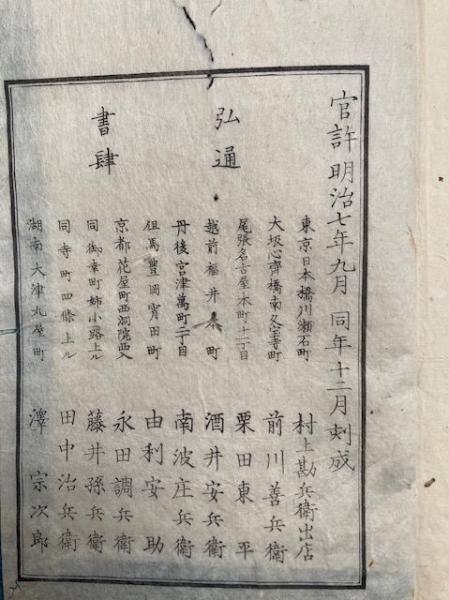 官許明治七年九月 同年十二月刻成
弘通
書肆
東京日本橋川瀬石町 村上勘兵衛出店
大坂心齊橋南久宝寺町 前川善兵衛
尾張名古屋本町十二丁目 栗田東平
越前福井町 酒井安兵衛
丹後宮津萬町二丁目 南波庄兵衛
但馬豊岡宵田町 由利安助
京都花屋町西洞院西入 永田調兵衛
同御幸町姉小路上ル 藤井孫兵衛
同寺町四條上ル 田中治兵衛
湖南大津丸屋町 澤宗次郎